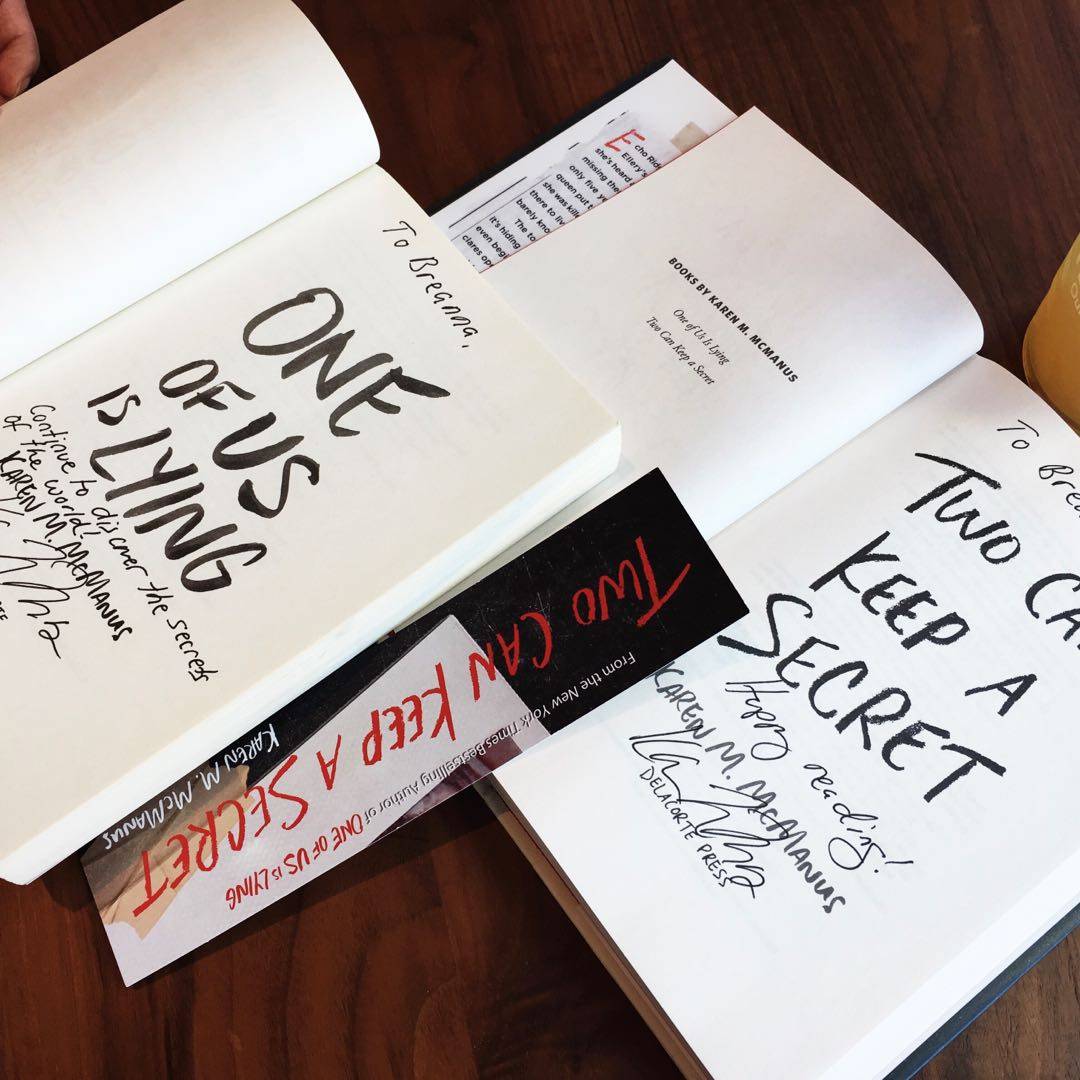 To Breanna,
ONE
OF US
IS LYING
Continue to discover the secrets
of the world!
KAREN M. McMANUS
E
cho Rid
Ellery's
she's heard
missing the
only five ye
queen put t
she was kille
there to liv
barely kno
The to
it's hiding
even beg
clares ope
BOOKS BY KAREN M. MCMANUS
One of Us Is Lying
Two Can Keep a Secret
To Brea
TWO CA
KEEP A
SECRET
Happy reading!
KAREN M. McMANUS
DELACORTE PRESS
TWO CAN KEEP A SECRET
From the New York Times Bestselling Author of ONE OF US IS LYING
KAREN M. McMANUS